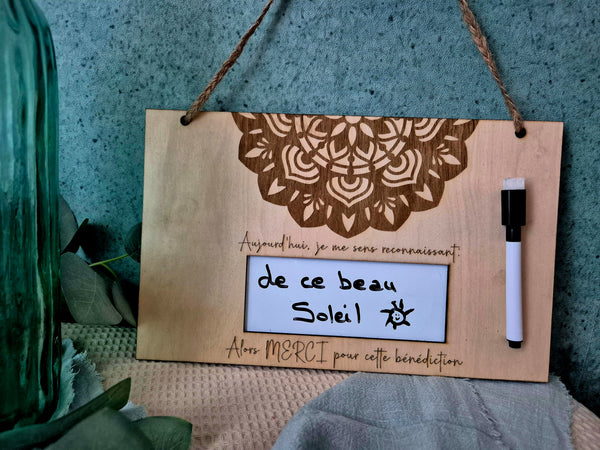 Aujourd'hui, je me sens reconnaissant:
de ce beau
Soleil
Alors MERCI pour cette bénédiction